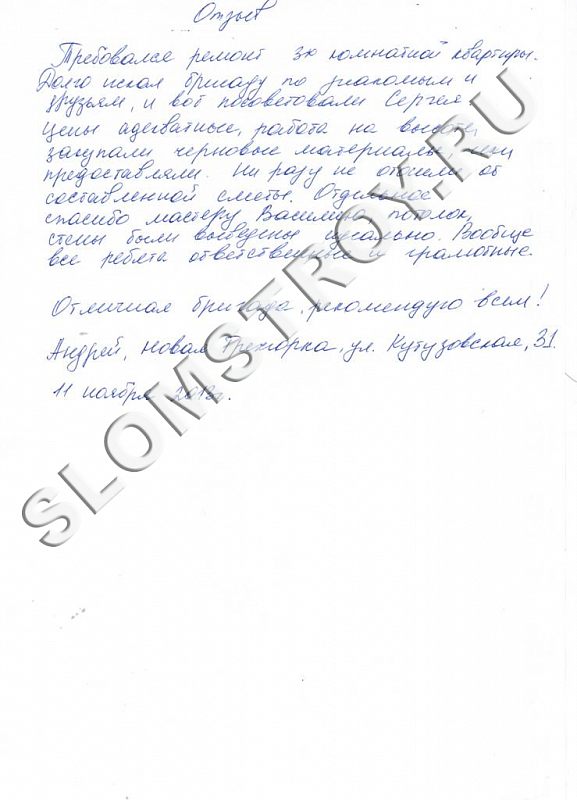 Отзыв
Требовался ремонт 3х комнатной квартиры.
Долго искал бригаду по знакомым и
друзьям, и вот посоветовали Сергея
Цены адекватные, работа на высоте,
закупали черновые материалы чеки
предоставляли. Ни разу не отошли от
составленной сметы. Отдельное
спасибо мастеру Василию, потолок,
стены были выведены идеально. Вообще
все ребята ответственные и грамотные.
Отличная бригада, рекомендую всем!
Андрей, Новая Трехгорка, ул. Кутузовская, 31.
11 ноября г.
SLOMSTROY.RU